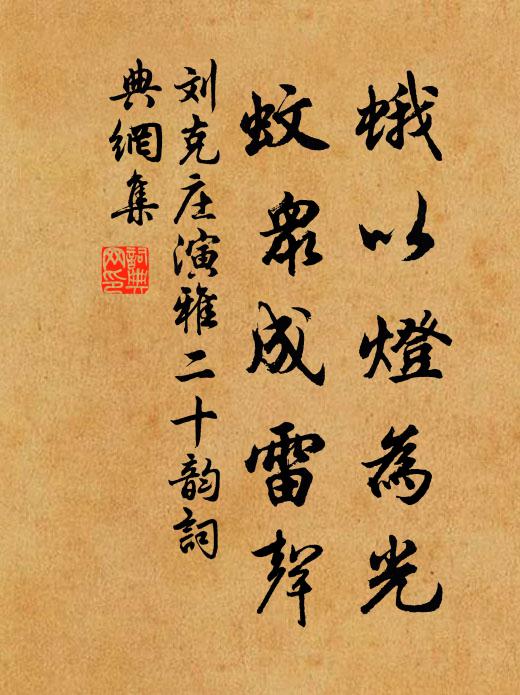 蛾以燈為光
蚊眾成雷聲
刘克庄演雅二十韵詞
典網集
詞典
网印